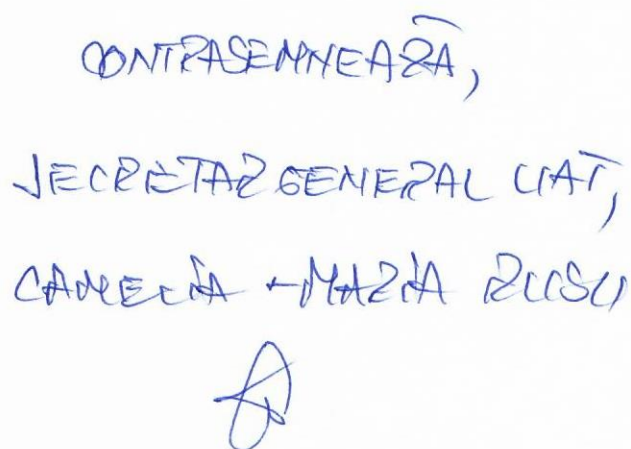 CONTRASEMNEAZĂ,
SECRETAR GENERAL UAT,
CAMELIA-MARIA RUSU